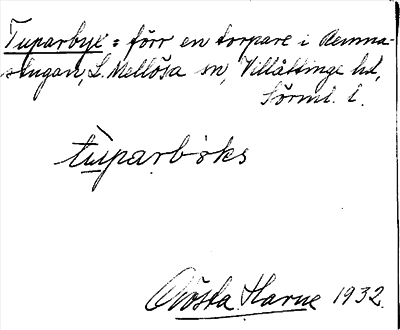 Tuparbyx = förr en torpare i Remna-
stugan, L. Mellösa sn, Villåttinge hd,
Sörml. l.
tuparbyks
Gösta Harne 1932.